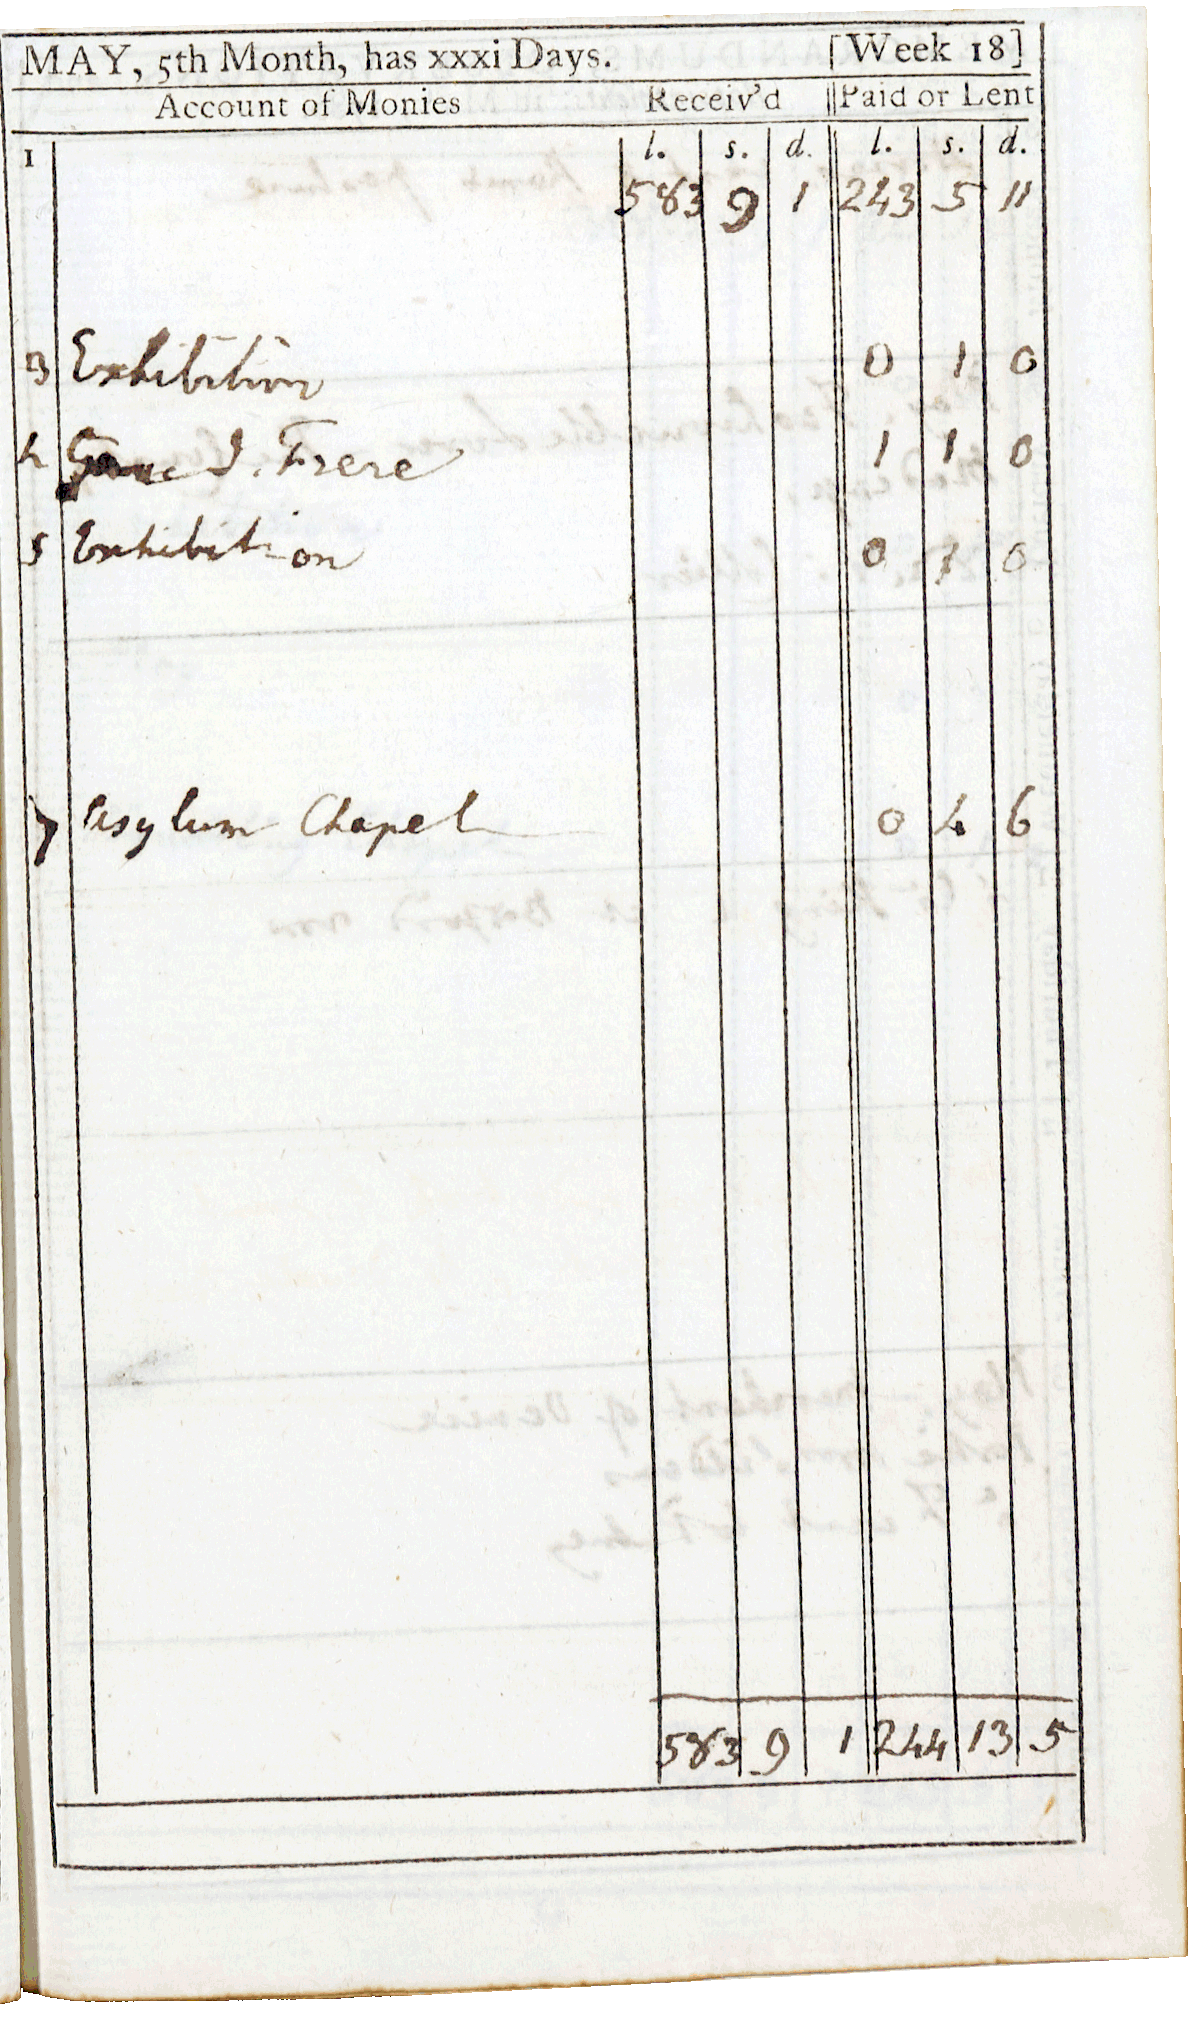 MAY, 5th Month, has xxxi Days. [Week 18]
Account of Monies Receiv'd Paid or Lent
l. s. d. l. s. d.
1 583 9 1 243 5 11
3 Exhibition 0 1 0
4 Gave J. Frere 1 1 0
5 Exhibition 0 1 0
7 Asylum Chapel 0 4 6
583 9 1 244 13 5